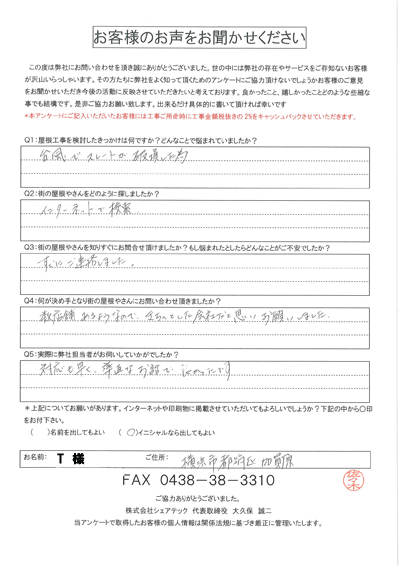 お客様のお声をお聞かせください
この度は弊社にお問い合わせを頂き誠にありがとうございました。世の中には弊社の存在やサービスをご存知ないお客様
が沢山いらっしゃいます。その方たちに弊社をよく知って頂くためのアンケートにご協力頂けないでしょうかお客様のご意見
をお聞かせいただき今後の活動に反映させていただきたいと考えております。良かったこと、嬉しかったことどのような些細な
事でも結構です。是非ご協力お願い致します。出来るだけ具体的に書いて頂ければ幸いです
*本アンケートにご記入いただいたお客様には工事ご用命時に工事金額税抜きの 2%をキャッシュバックさせていただきます。
Q1:屋根工事を検討したきっかけは何ですか?どんなことで悩まれていましたか?
台風でスレートが破損した為
Q2:街の屋根やさんをどのように探しましたか?
インターネットで検索
Q3:街の屋根やさんを知りすぐにお問合せ頂けましたか?もし悩まれたとしたらどんなことがご不安でしたか?
すぐにご連絡しました。
Q4:何が決め手となり街の屋根やさんにお問い合わせ頂きましたか?
数店舗あるようなので、きちんとした会社だと思いお願いしました。
Q5:実際に弊社担当者がお伺いしていかがでしたか?
対応も早く、率直なお話で
*上記についてお願いがあります。インターネットや印刷物に掲載させていただいてもよろしいでしょうか?下記の中から〇印
をお付下さい。
( )名前を出してもよい ( 〇)イニシャルなら出してもよい
お名前: T 様 ご住所: 横浜市都筑区加賀原
佐々木
FAX 0438-38-3310
ご協力ありがとうございました。
株式会社シェアテック 代表取締役 大久保 誠二
当アンケートで取得したお客様の個人情報は関係法規に基づき厳正に管理いたします。